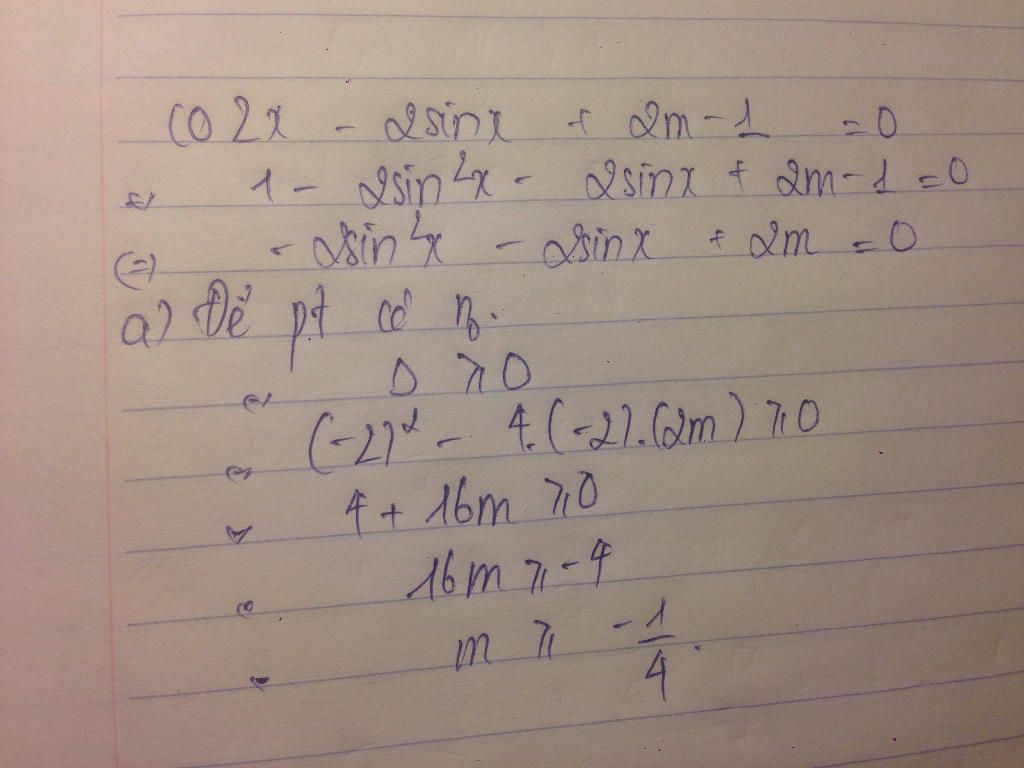 co2x - 2sinx + 2m-1 = 0
⇔ 1 - 2sin²x - 2sinx + 2m-1 = 0
(=) - 2sin²x - 2sinx + 2m = 0
a) Để pt có n₀.
⇔ Δ ≥ 0
⇔ (-2)² - 4.(-2).(2m) ≥ 0
⇔ 4 + 16m ≥ 0
⇔ 16m ≥ -4
⇔ m ≥ -1/4.